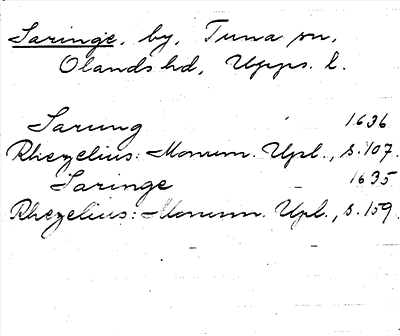 Saringe, by, Tuna sn,
Olands hd, Upps. l.
Sarung 1636
Rhezelius: Monum. Upl., s. 107.
Saringe 1635
Rhezelius: Monum. Upl., s. 159.